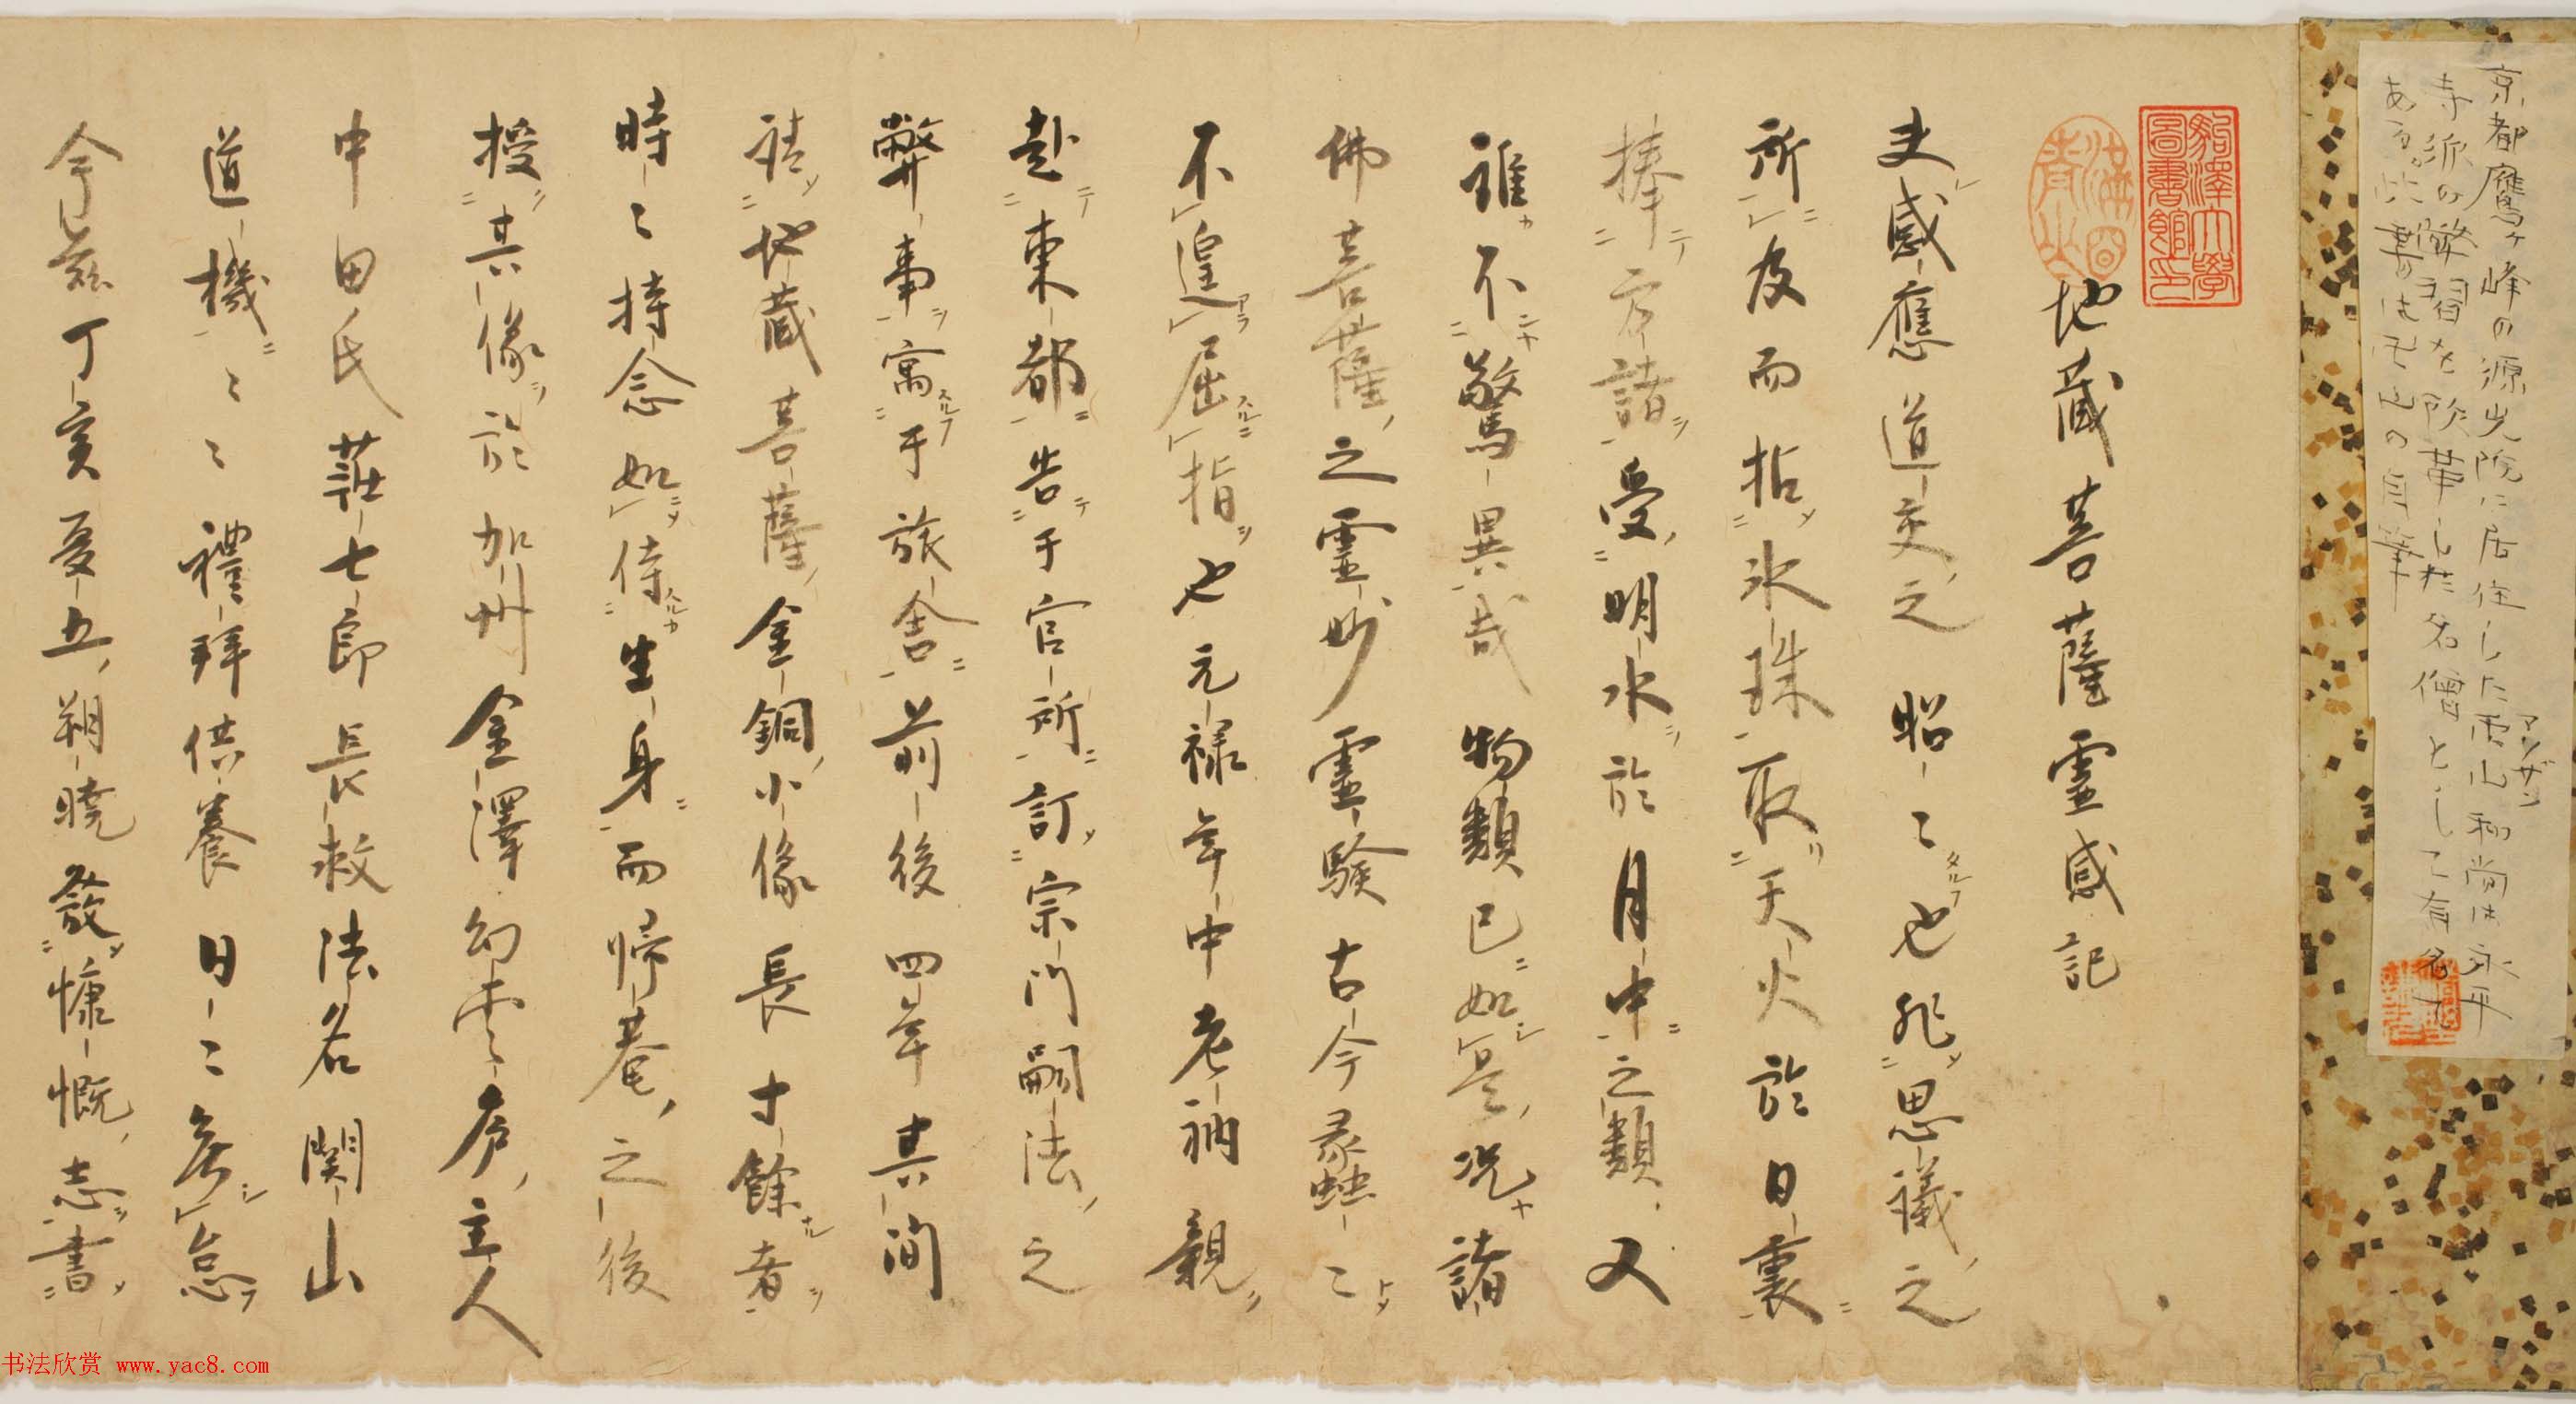 京都鷹ヶ峰の源光院に居住した卍山和尚は永平
マンザン
寺派の弊習を改革した名僧として有名で
ある。此書は卍山の自筆
駒澤大學
圖書館印
地藏菩薩靈感記
夫感應道交之昭々也非思議之
所及而拈氷珠取天火於日裏
捧方諸受明水於月中之類又
誰不驚異哉物類已如是況諸
佛菩薩之靈妙靈驗古今蠡々
不遑屈指也元禄年中老衲親
赴東都告于官所訂宗門嗣法之
弊事寓于旅舎前後四年其间
請地藏菩薩金銅小像長寸餘者
時々持念如侍生身而帰菴之後
授其像於加州金澤幻雲庵主人
中田氏莊七郎長救法名関山
道機々々禮拜供養日々無怠
今茲丁亥夏五朔曉發慷慨志書
书法欣赏 www.yac8.com